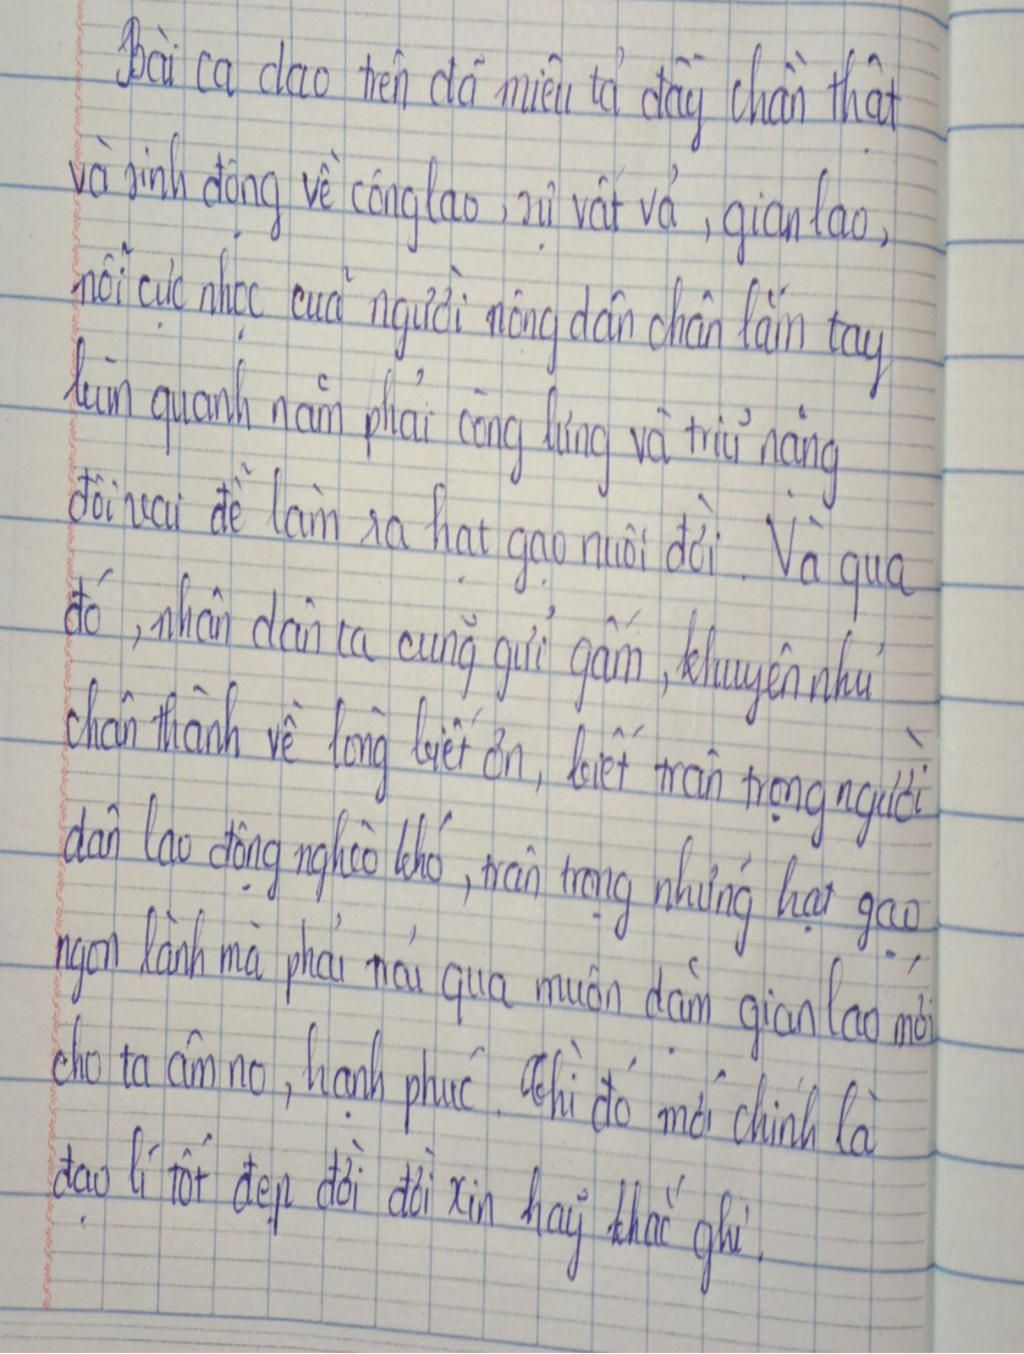 Bài ca dao trên đã miêu tả đầy chân thật
và sinh động về công lao, sự vất vả, gian lao,
nỗi cực nhọc của người nông dân chân lấm tay
lùn quanh năm phải còng lưng và trĩu nặng
đôi vai để làm ra hạt gạo nuôi đời. Và qua
đó, nhân dân ta cũng gửi gấm, khuyên nhủ
chân thành về lòng biết ơn, biết trân trọng người
dân lao động nghèo khó, trân trọng những hạt gạo
ngon lành mà phải trải qua muôn dặm gian lao mới
cho ta ấm no, hạnh phúc. Chỉ đó mới chính là
đạo lí tốt đẹp đời đời xin hãy khắc ghi.